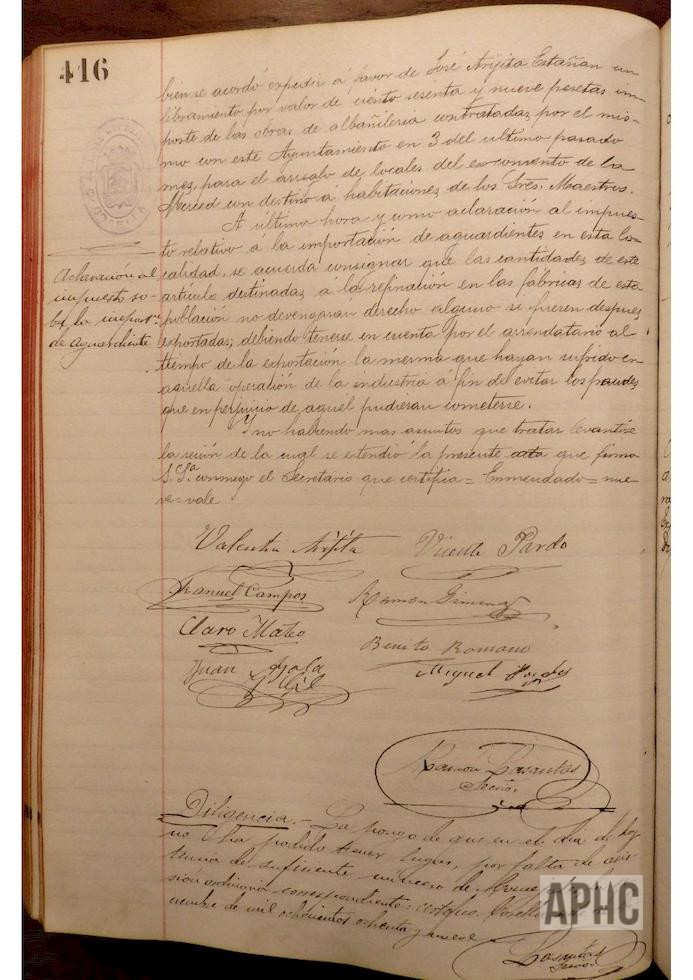 416
bien se acordó expedir á favor de José Arjita Estañan un
libramiento por valor de ciento sesenta y nueve pesetas im-
porte de las obras de albañileria contratadas por el mis-
mo con este Ayuntamiento en 3 del ultimo pasado
mes, para el arreglo de locales del ex-convento de la
Merced con destino á habitaciones de los Sres. Maestros.
A última hora y como aclaración al impues-
to relativo a la importación de aguardientes en esta lo-
calidad, se acuerda consignar que las cantidades de este
artículo destinadas a la refinación en las fábricas de esta
población no devengaran derecho alguno si fueren despues
exportadas; debiendo tenerse en cuenta por el arrendatario al
tiempo de la exportación la merma que hayan sufrido en
aquella operación de la industria á fin de evitar los fraudes
que en perjuicio de aquél pudieran cometerse.
Y no habiendo mas asuntos que tratar levantóse
la sesión de la cual se extendió la presente acta que firma
S. Sª. conmigo el Secretario que certifica = Enmendado = nue-
ve = vale
Aclaración al
impuesto so-
bre la import.ⁿ
de Aguardiente
Valentin Arjita
Vicente Pardo
Manuel Campos
Ramon Gimenez
Claro Mateo
Benito Romano
Juan Ayala
Gil
Miguel
Ramon
Secrio.
Diligencia.- La pongo de que en el dia de hoy
no ha podido tener lugar, por falta de asis-
tencia de suficiente numero de
sion ordinaria correspondiente: certifico.
de mil ochocientos ochenta y nueve
APHC